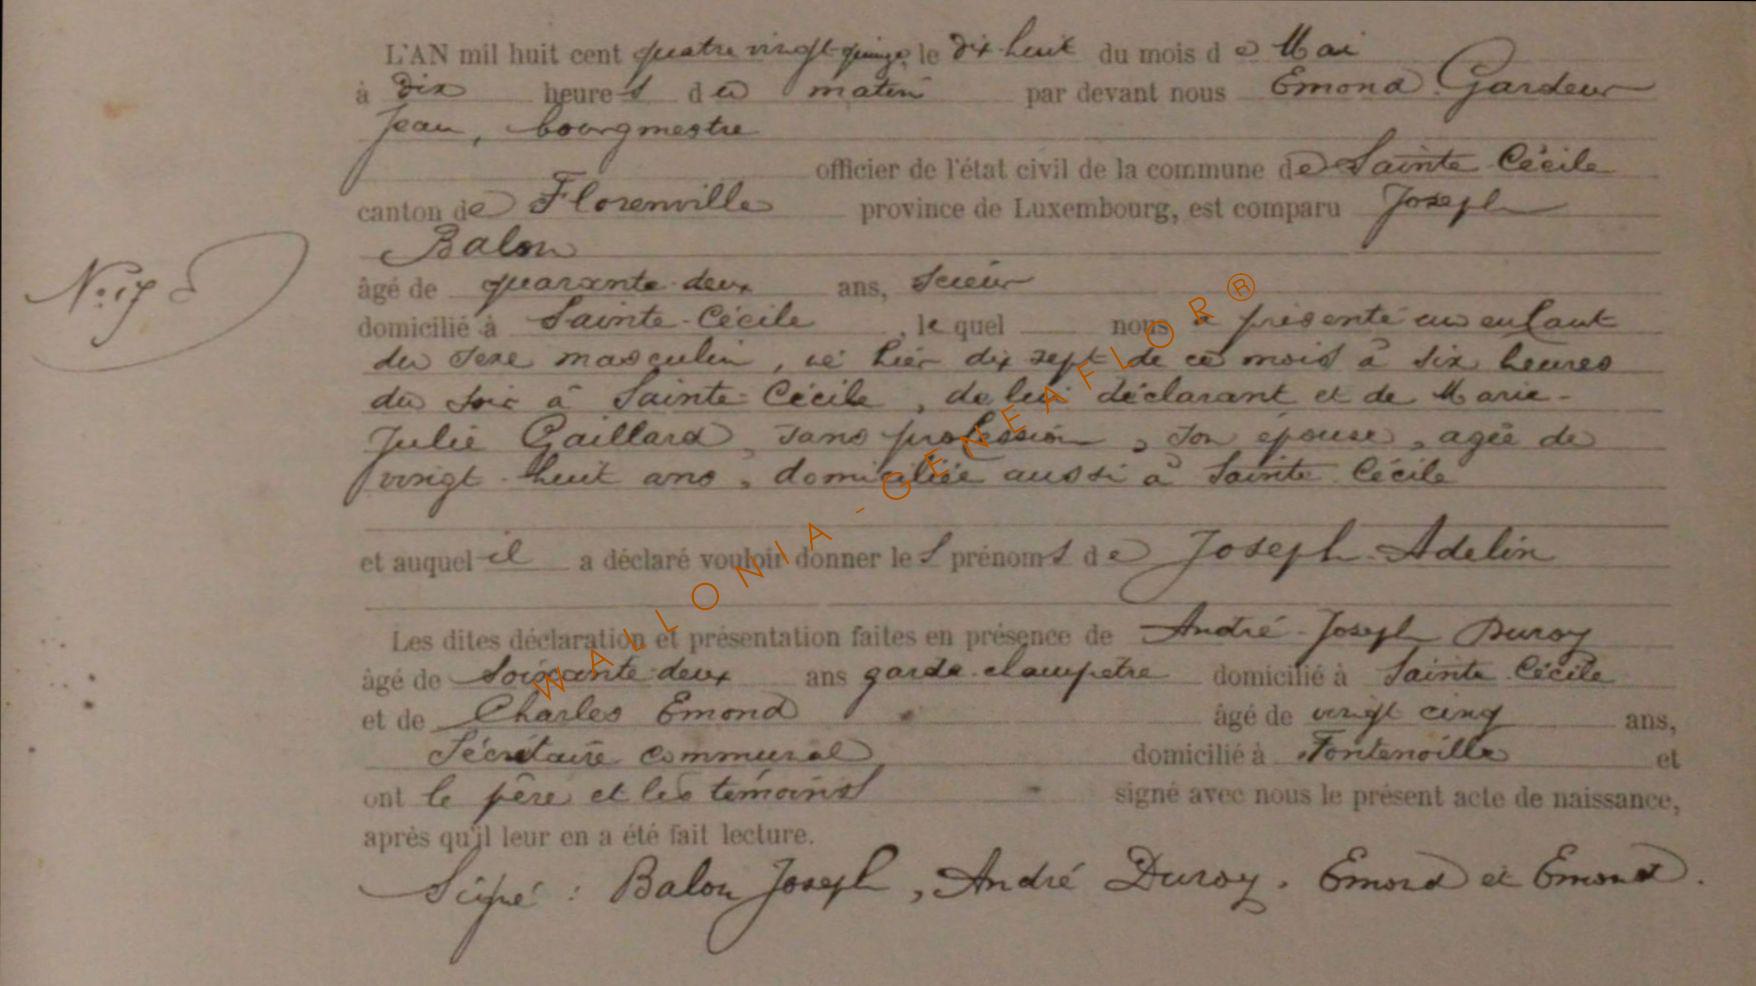 L'AN mil huit cent quatre vingt-quinze, le dix-huit du mois de Mai
à dix heures du matin par devant nous Emond Gardeur
Jean, bourgmestre
officier de l'état civil de la commune de Sainte Cécile
canton de Florenville province de Luxembourg, est comparu Joseph
Balon
âgé de quarante-deux ans, scieur
domicilié à Sainte-Cécile, le quel nous a présenté un enfant
du sexe masculin, né hier dix sept de ce mois à six heures
du soir à Sainte-Cécile, de lui déclarant et de Marie-
Julie Gaillard, sans profession, son épouse, agée de
vingt-huit ans, domiciliée aussi à Sainte-Cécile
et auquel il a déclaré vouloir donner les prénoms de Joseph-Adelin
Les dites déclaration et présentation faites en présence de André-Joseph Duroy
âgé de soixante-deux ans garde-champetre domicilié à Sainte-Cécile
et de Charles Emond âgé de vingt cinq ans,
Sécrétaire communal, domicilié à Fontenoille et
ont le père et les témoins signé avec nous le présent acte de naissance,
après qu'il leur en a été fait lecture.
Signé : Balon Joseph, André Duroy. Emond et Emond.
N° 17
WALLONIA-GENEAFLOR®